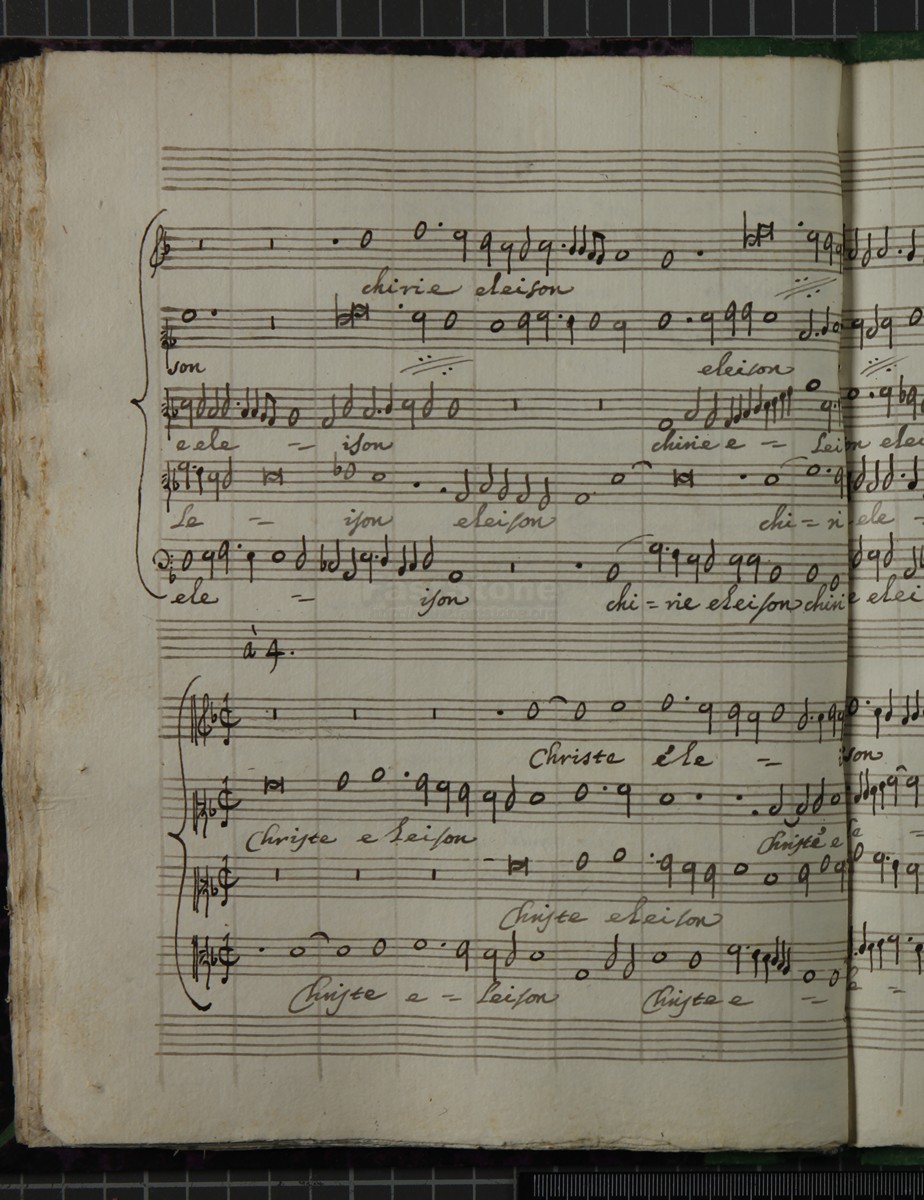 chirie eleison
son eleison
e ele = ison chirie e = Lei on elei
Le = ison eleison chi = ri ele =
ele = ison chi = rie eleison chirie elei
à 4.
Christe ele = ison
Christe e Leison Christe e le =
Christe eleison
Christe e = Leison Christe e = le =